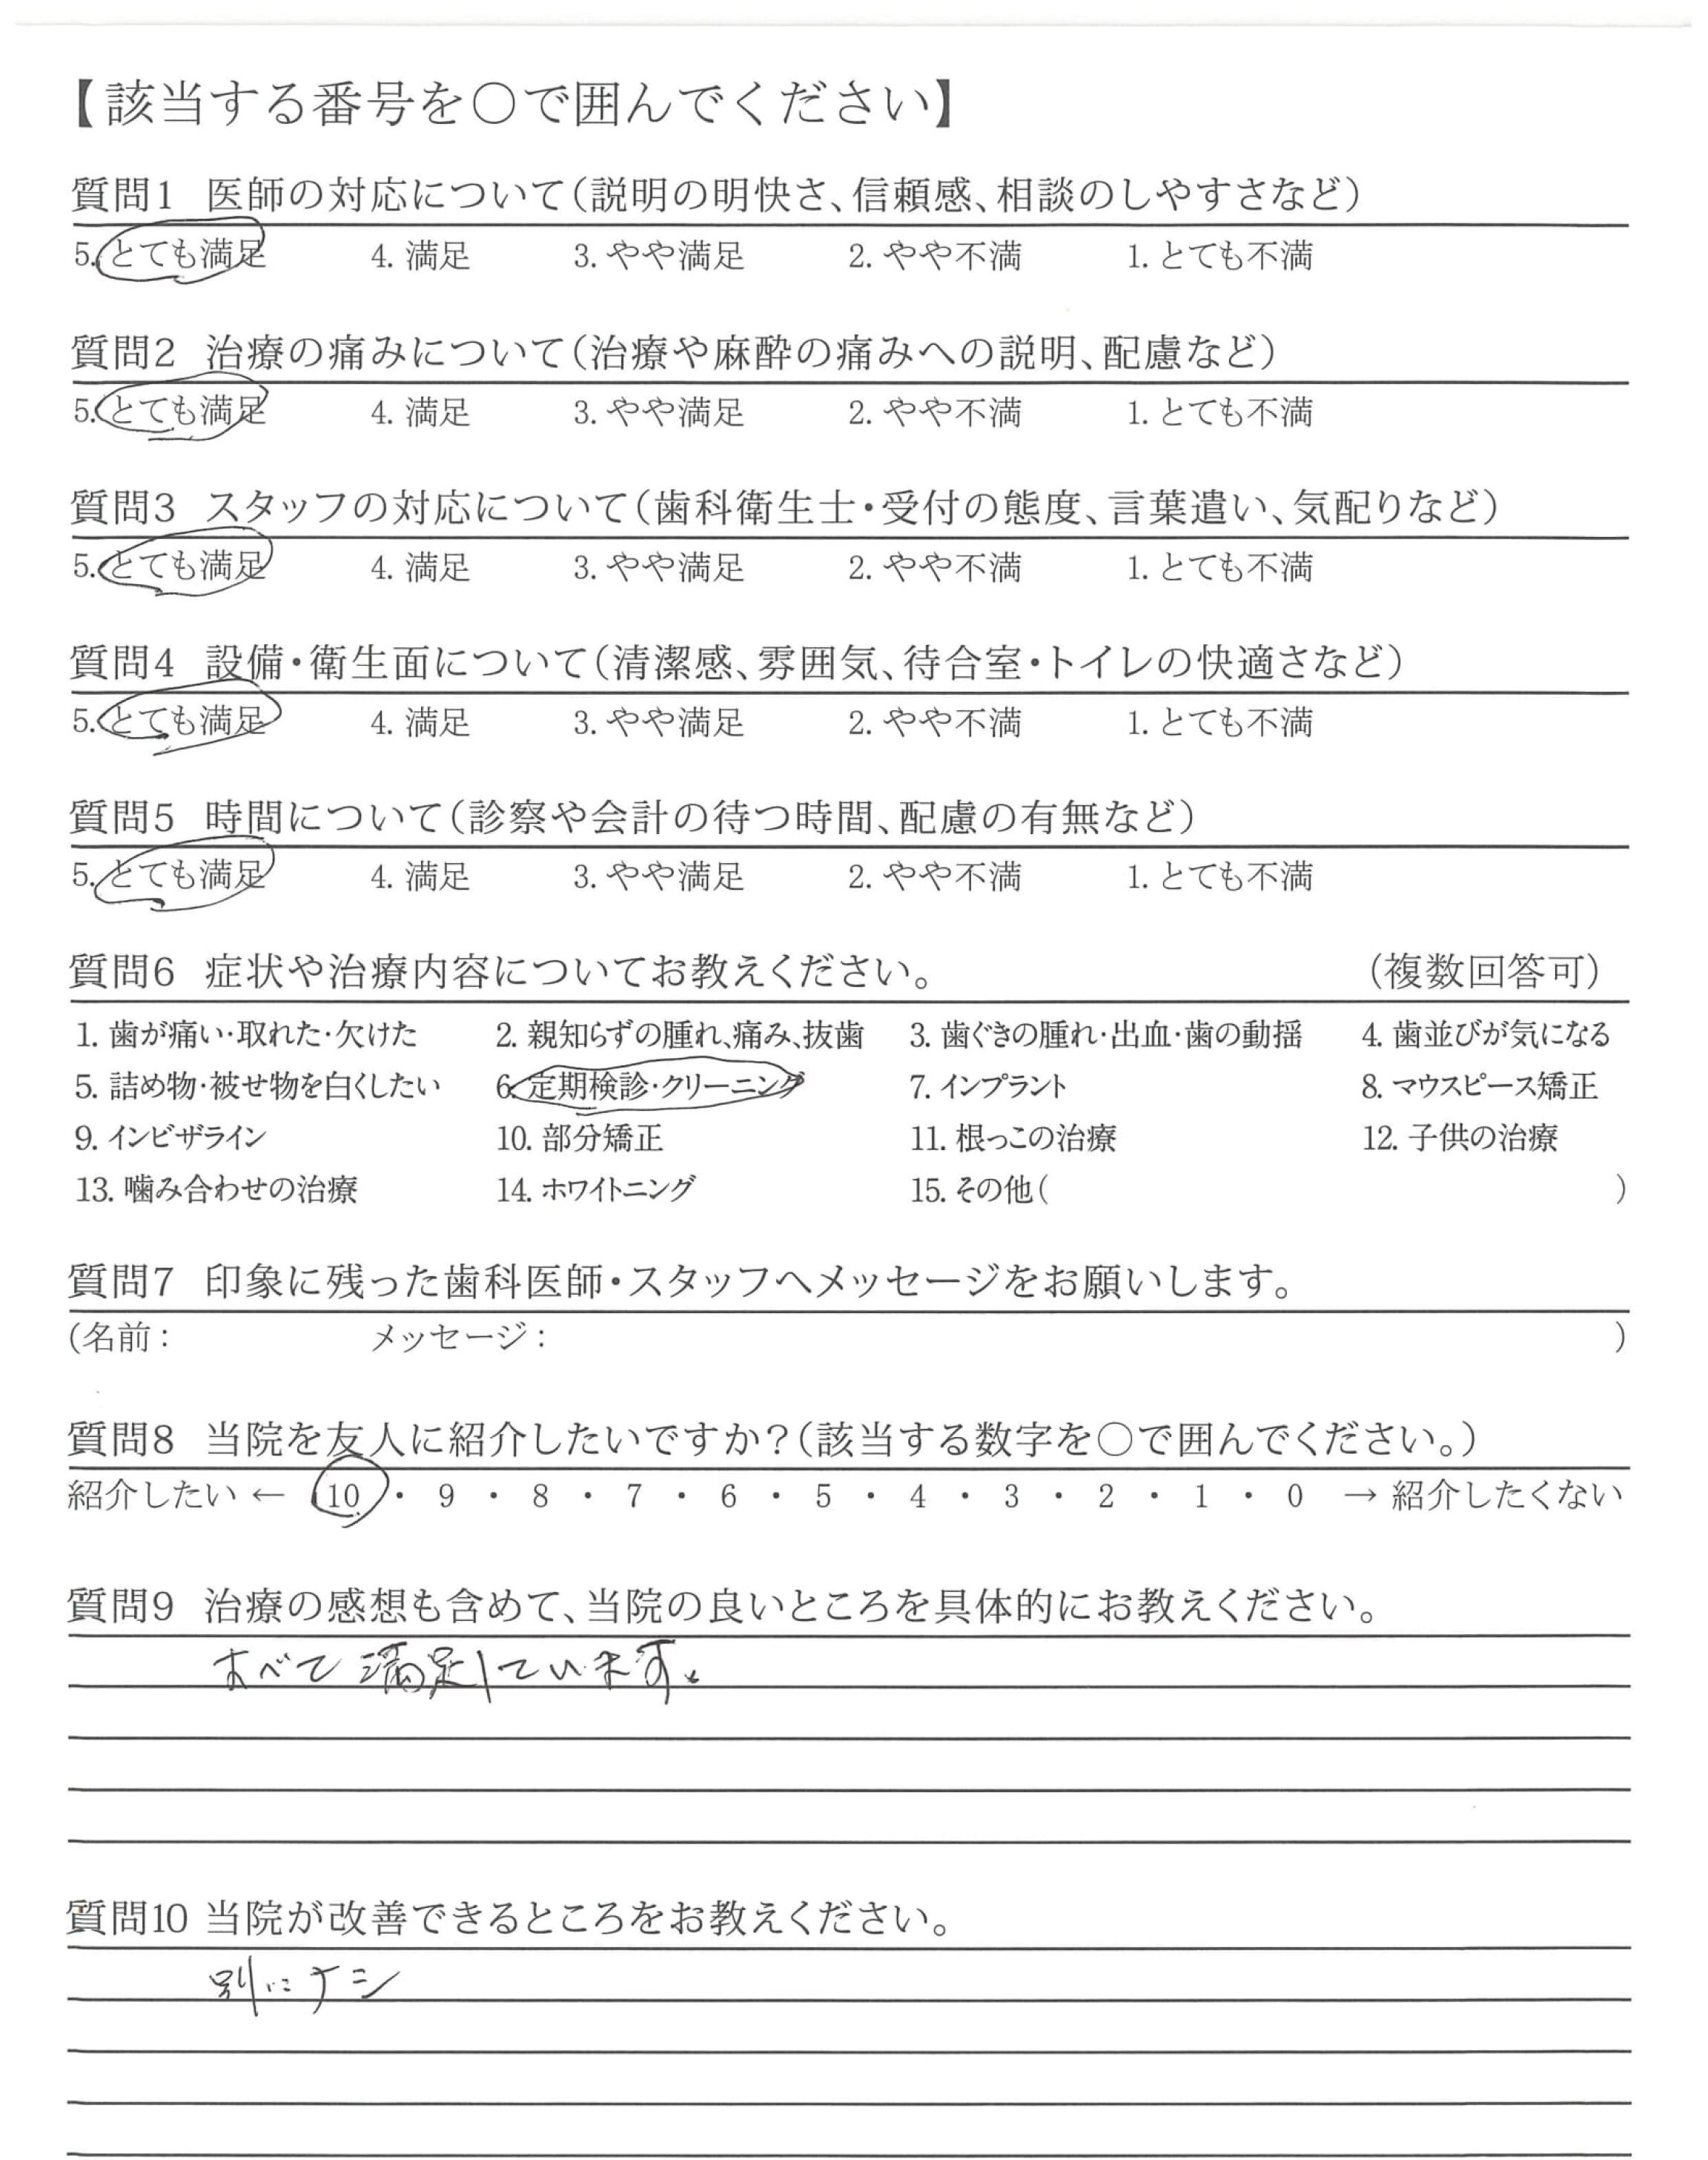 【該当する番号を○で囲んでください】
質問1 医師の対応について(説明の明快さ、信頼感、相談のしやすさなど)
5. とても満足 4. 満足 3. やや満足 2. やや不満 1. とても不満
質問2 治療の痛みについて(治療や麻酔の痛みへの説明、配慮など)
5. とても満足 4. 満足 3. やや満足 2. やや不満 1. とても不満
質問3 スタッフの対応について(歯科衛生士・受付の態度、言葉遣い、気配りなど)
5. とても満足 4. 満足 3. やや満足 2. やや不満 1. とても不満
質問4 設備・衛生面について(清潔感、雰囲気、待合室・トイレの快適さなど)
5. とても満足 4. 満足 3. やや満足 2. やや不満 1. とても不満
質問5 時間について(診察や会計の待つ時間、配慮の有無など)
5. とても満足 4. 満足 3. やや満足 2. やや不満 1. とても不満
質問6 症状や治療内容についてお教えください。 (複数回答可)
1. 歯が痛い・取れた・欠けた 2. 親知らずの腫れ、痛み、抜歯 3. 歯ぐきの腫れ・出血・歯の動揺 4. 歯並びが気になる
5. 詰め物・被せ物を白くしたい 6. 定期検診・クリーニング 7. インプラント 8. マウスピース矯正
9. インビザライン 10. 部分矯正 11. 根っこの治療 12. 子供の治療
13. 噛み合わせの治療 14. ホワイトニング 15. その他( )
質問7 印象に残った歯科医師・スタッフへメッセージをお願いします。
(名前: メッセージ: )
質問8 当院を友人に紹介したいですか?(該当する数字を○で囲んでください。)
紹介したい ← 10 ・ 9 ・ 8 ・ 7 ・ 6 ・ 5 ・ 4 ・ 3 ・ 2 ・ 1 ・ 0 → 紹介したくない
質問9 治療の感想も含めて、当院の良いところを具体的にお教えください。
すべて満足しています。
質問10 当院が改善できるところをお教えください。
別にナシ